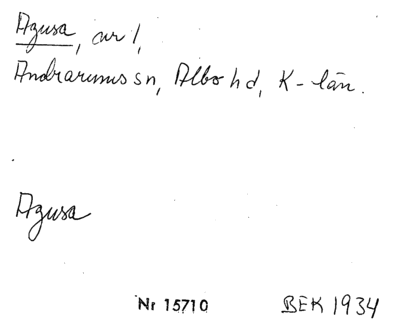 Agusa, av 1,
Andrarums sn, Albo hd, K-län.
Agusa
Nr 15710 BEK 1934